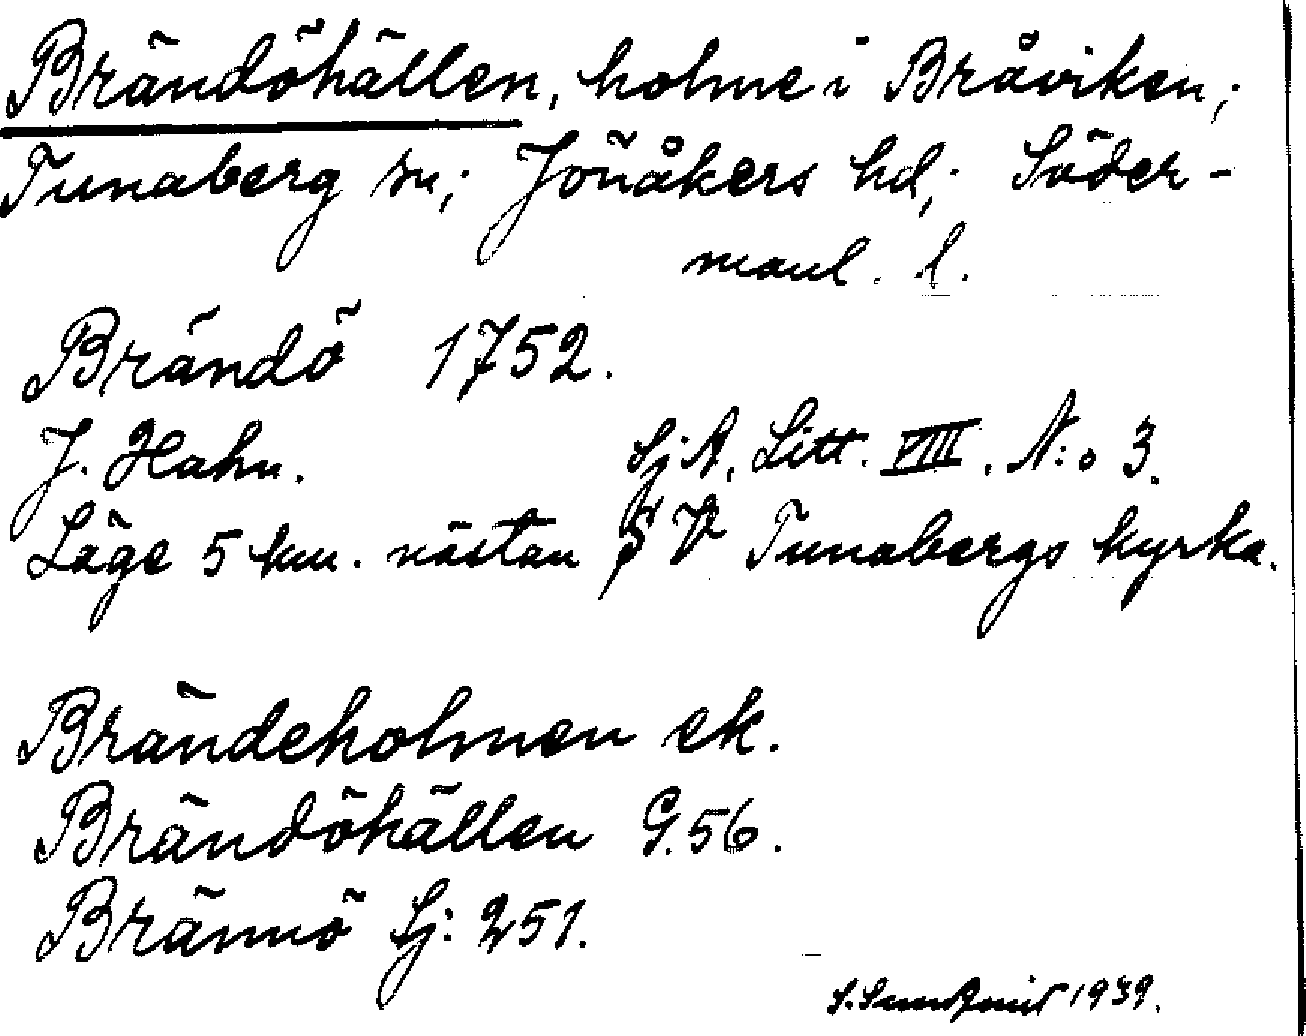 Brändöhällen, holme i Bråviken;
Tunaberg sn; Jönåkers hd; Söder-
manl. l.
Brändö 1752.
J. Hahn. Sj A. Litt. VIII. N:o 3.
Läge 5 km. nästan S V Tunabergs kyrka.
Brändeholmen ek.
Brändöhällen G. 56.
Brännö Sj: 251.
1939.